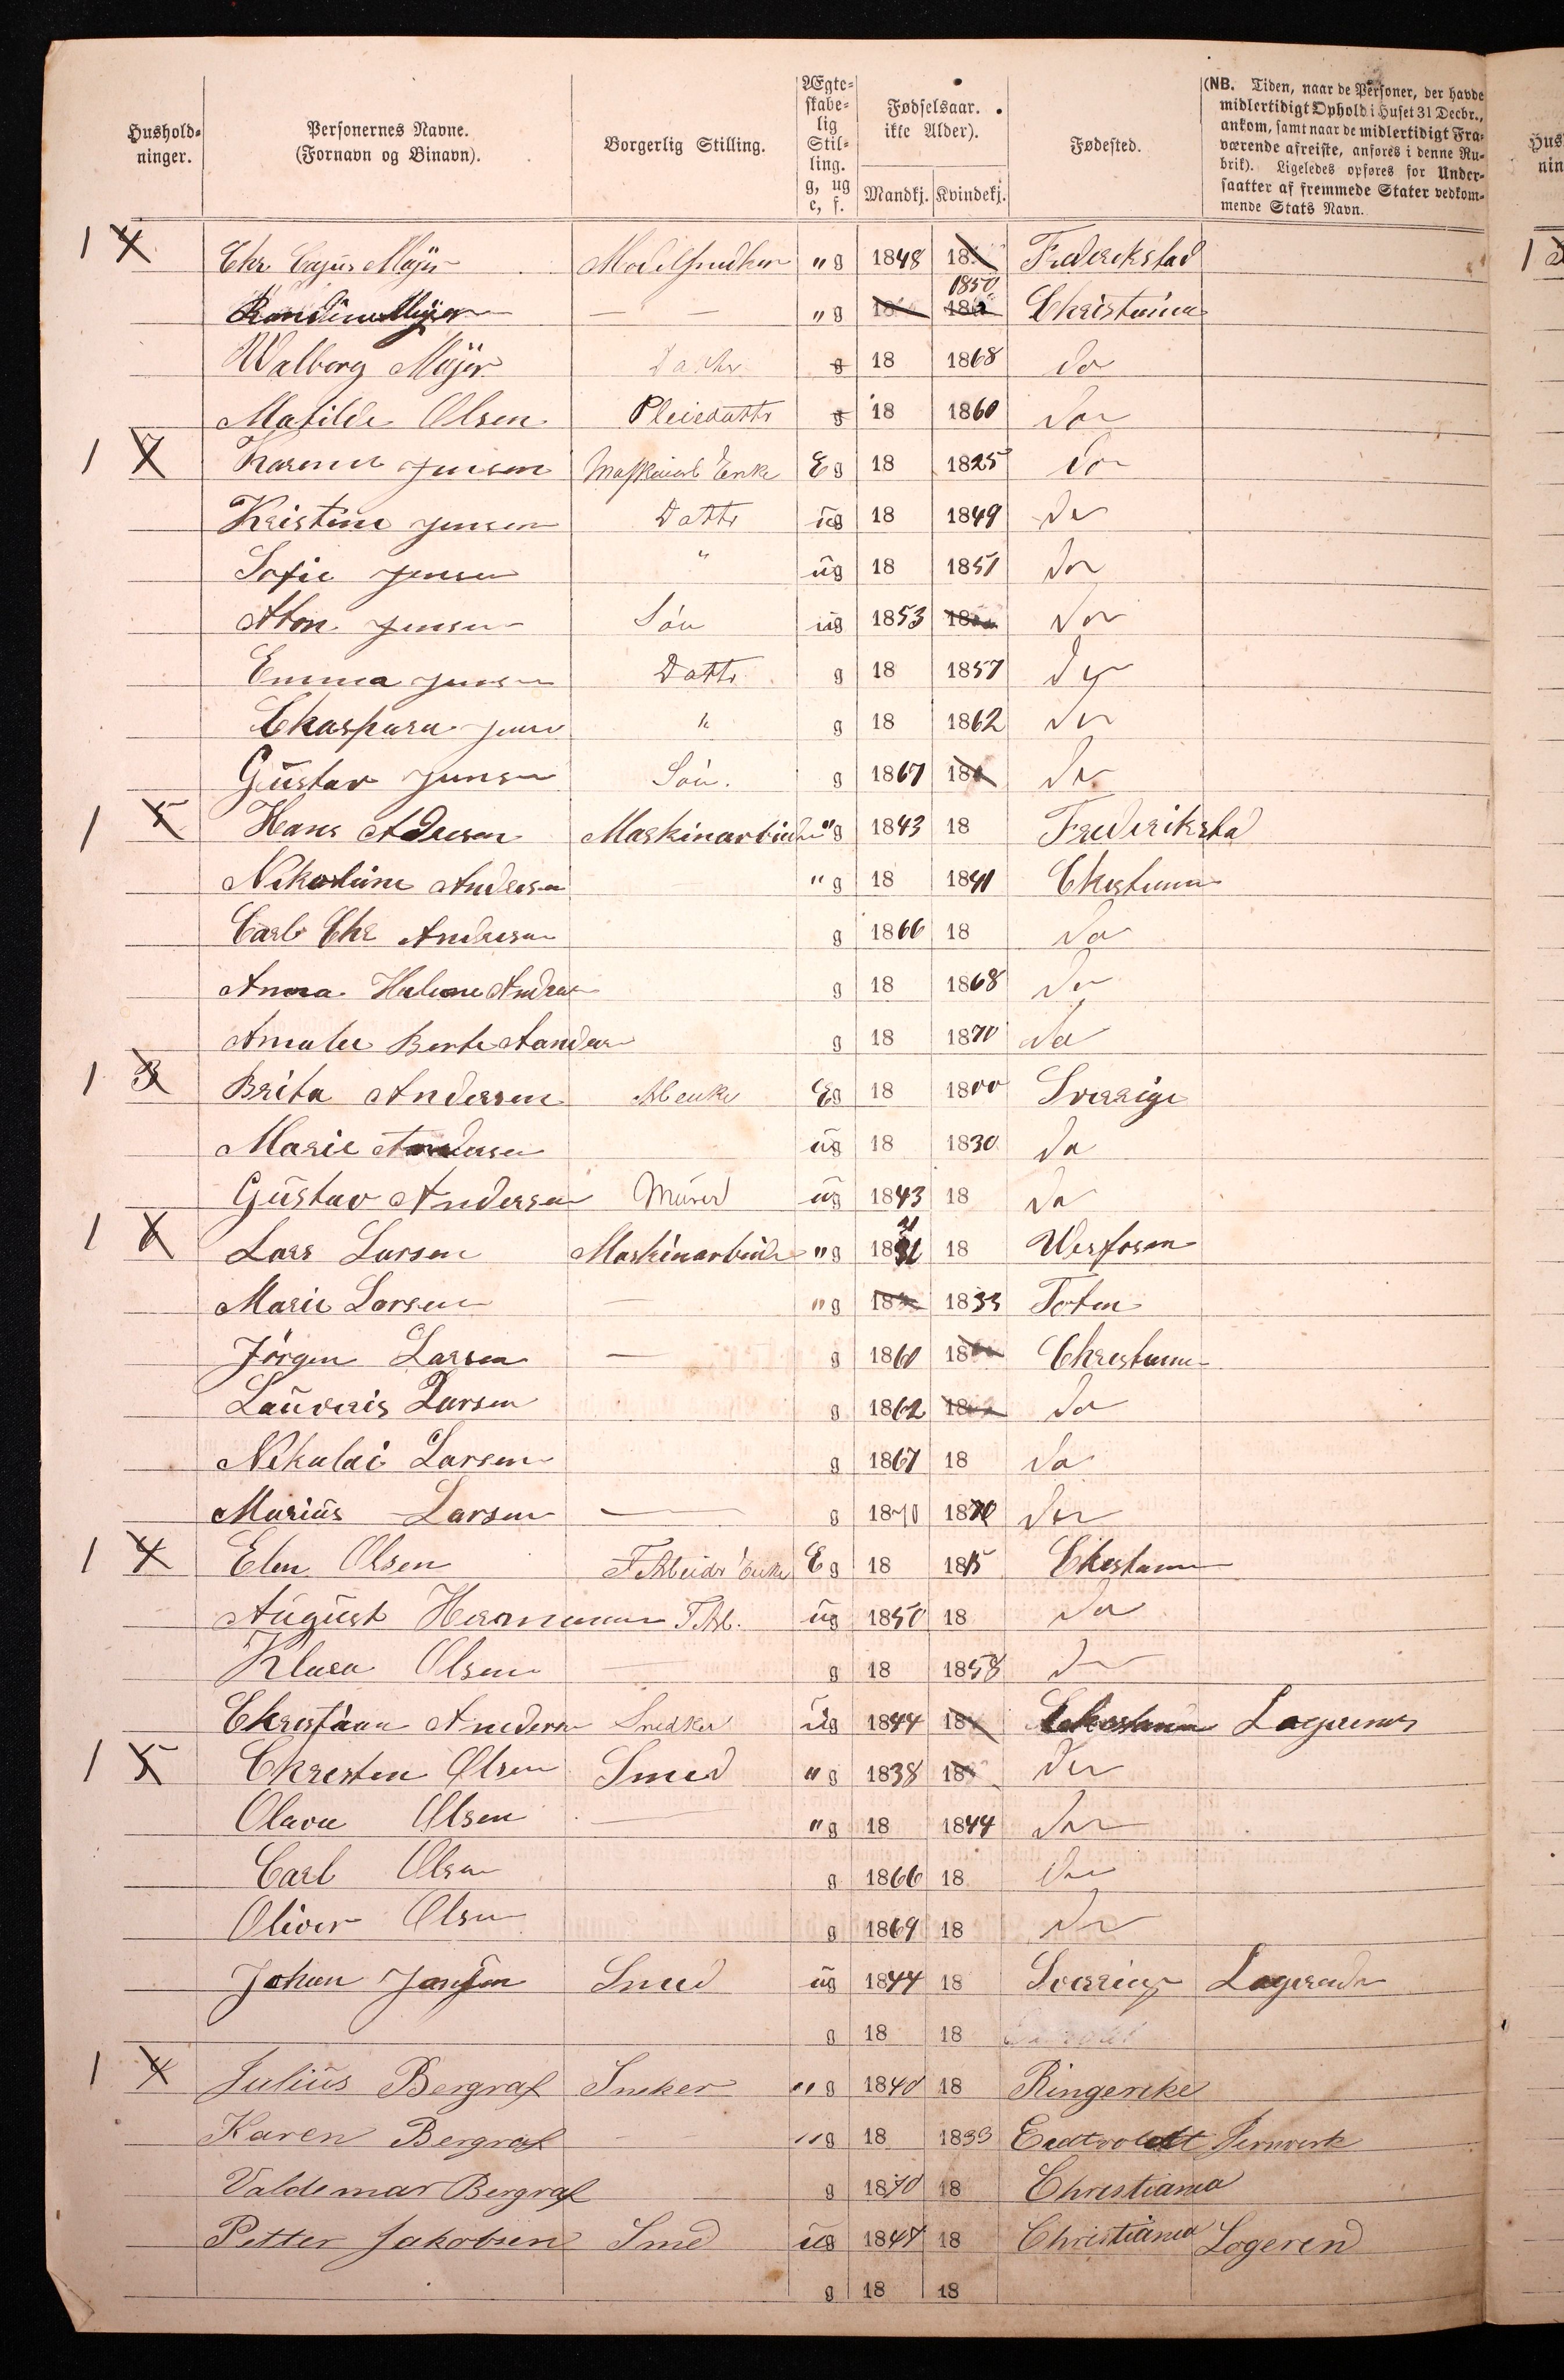 Hushold-
ninger.
Personernes Navne.
(Fornavn og Binavn).
Borgerlig Stilling.
Ægte-
skabe-
lig
Stil-
ling.
g, ug
e, f.
Fødselsaar.
ikke Alder).
Mandkj. Kvindekj.
Fødested.
(NB. Tiden, naar de Personer, der havde
midlertidigt Ophold i Huset 31 Decbr.,
ankom, samt naar de midlertidigt Fra-
værende afreiste, anføres i denne Ru-
brik). Ligeledes opføres for Under-
saatter af fremmede Stater vedkom-
mende Stats Navn.
1 4 Chr Cajus Møjer "g 1848 18 Frederekstad
Mejer — — "g 18 1850 Christania
Walborg Møjer Datr g 18 1868 do
Matilde Olsen Pleiedattr g 18 1860 do
1 7 Karene Jensen Enke Eg 18 1825 do
Kristine Jensen Dattr ug 18 1849 do
Sofie Jensen " ug 18 1851 do
Jensen Søn ug 1853 18 do
Emma Jensen Dattr g 18 1857 do
Jens " g 18 1862 do
Gustav Jensen Søn. g 1867 18 do
1 5 Hans Andresen Maskinarbeider "g 1843 18 Frederikstad
Nikoline Andresen "g 18 1841 Christiania
Carl Chr Andresen g 1866 18 do
Anna Helene Andres g 18 1868 do
Amalie Berte Aander g 18 1870 do
1 3 Brita Andersen Eg 18 1800 Sverrige
Marie Andersen ug 18 1830 do
Gustav Andersen Murer ug 1843 18 do
1 6 Lars Larsen Maskinarbeide "g 18 18
Marie Larsen — "g 18 1833 Toten
Jörgen Larsen — g 1860 18 Christiania
Lauvris Larsen g 1862 18 do
Nikolai Larsen g 1867 18 do
Marius Larsen — g 1870 1870 do
1 4 Elen Olsen Enke Eg 18 1815 Christiania
August Hermann F Arb. ug 1850 18 do
Klara Olsen — g 18 1858 do
Christian Anders Snedker ug 1844 18 Christiania Logerende
1 5 Christen Olsen Smed "g 1838 18 do
Olava Olsen — "g 18 1844 do
Carl Olsen g 1866 18 do
Oliver Olsen g 1869 18 do
Johan Jansen Smed ug 1844 18 Sverrig Logerende
g 18 18
1 4 Julius Bergraf Sneker "g 1840 18 Ringerike
Karen Bergraf — "g 18 1833 Eidtvoldt Jernverk
Valdemar Bergraf g 1870 18 Christiania
Petter Jakobsen Smed ug 1847 18 Christiania Logeren
g 18 18
Hus
nin
1